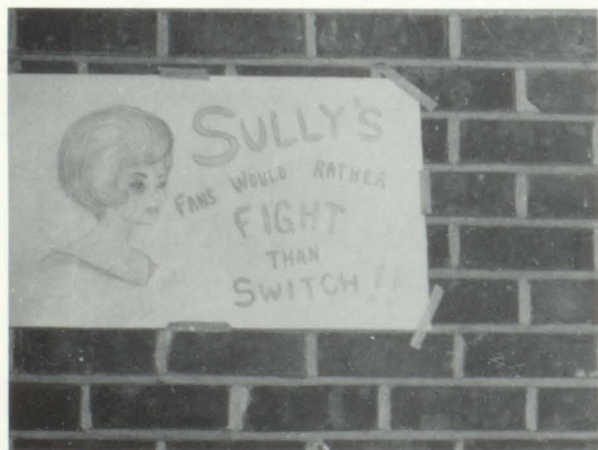 SULLY'S
FANS WOULD RATHER
FIGHT
THAN
SWITCH!!